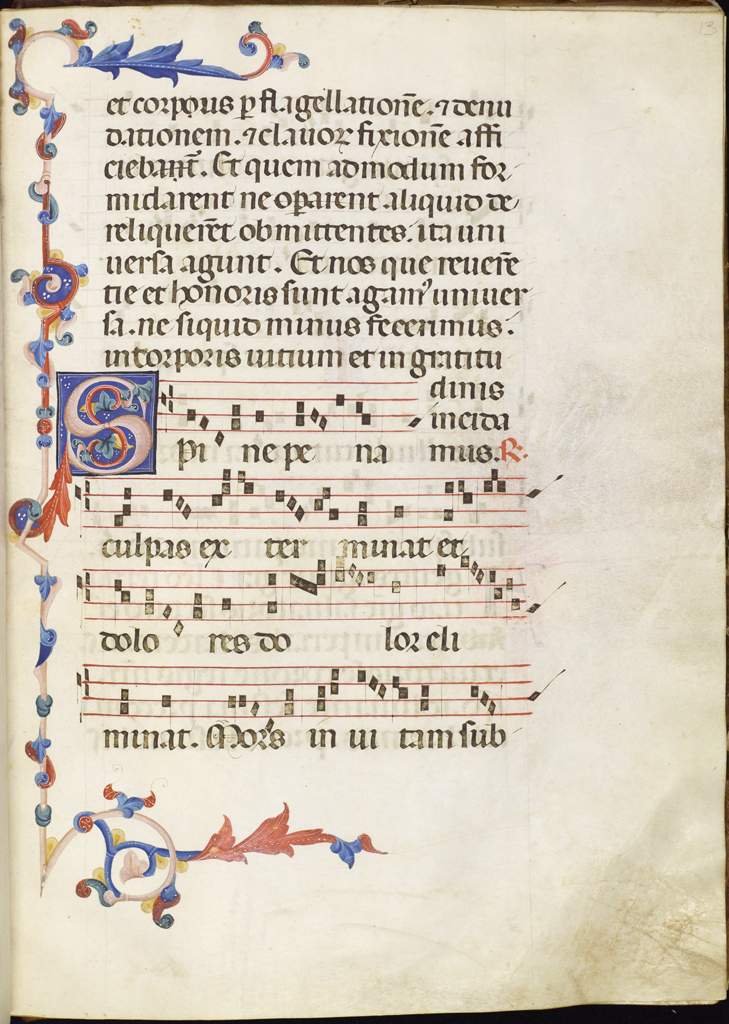 13
et corpus ꝑ flagellationē. ⁊ denu
dationem. ⁊ clauoꝝ fixionē affi
ciebant̄. Et quem admodum for
midarent ne oꝑarent aliquid de
reliquerēt obmittentes. ita uni
uersa agunt. Et nos que reuerē
tie et honoris sunt agamꝰ uniuer
sa. ne siquid minus fecerimus.
in corporis uitium et in gratitu
dinis
incida
Spi ne pe na mus. ℟.
culpas ex ter minat et
dolo res do lor eli
minat. Mors in ui tam sub